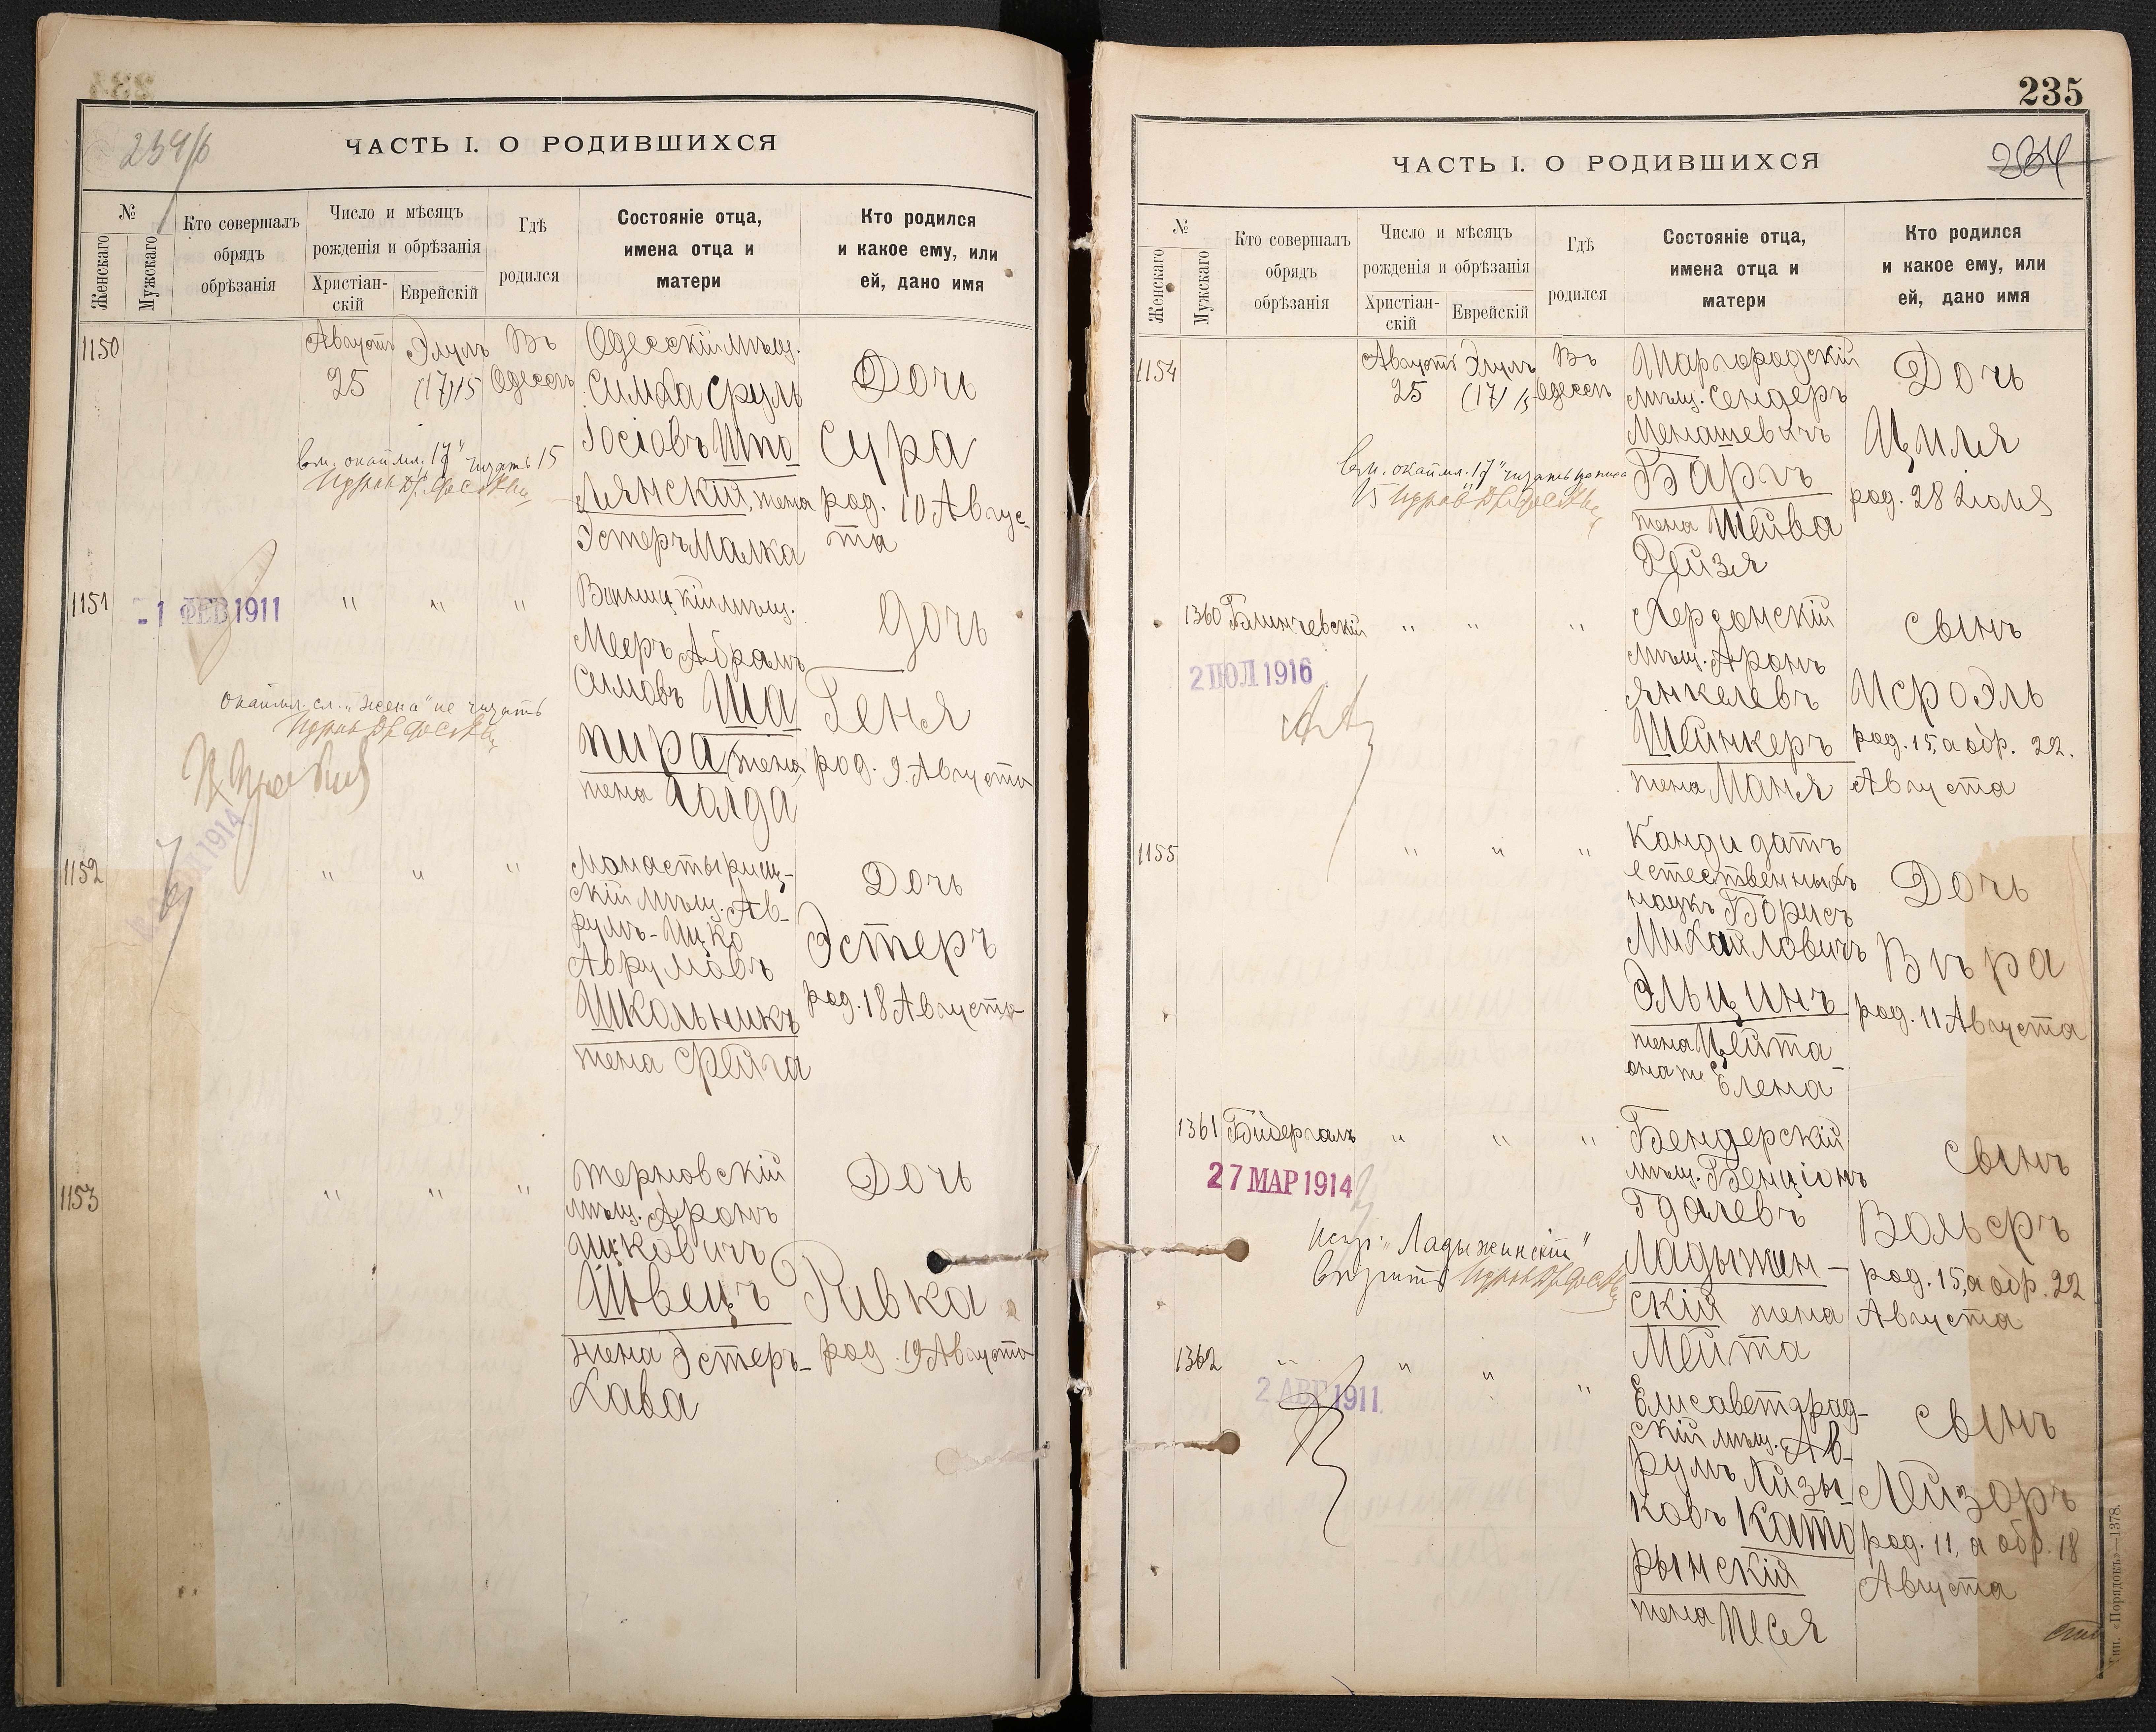 234/б
ЧАСТЬ I. О РОДИВШИХСЯ
№
Женскаго
Мужскаго
Кто совершалъ
обрядъ
обрѣзанія
Число и мѣсяцъ
рожденія и обрѣзанія
Христіан-
скій
Еврейскій
Гдѣ
родился
Состояніе отца,
имена отца и
матери
Кто родился
и какое ему, или
ей, дано имя
1150
Августъ
25
Элулъ
(17) 15
Въ
Одессѣ
Одесскій мѣщ.
Симха Сруль
Іосіовъ Шпо
лянскій, жена
Эстеръ Малка
Дочь
Сура
род. 10 Авгус-
та
Вм. окаймл. "17" читать 15
1151
-1 ФЕВ 1911
" " "
Винницкій мѣщ.
Мееръ Абрамъ
Симовъ Ша
пира жена
жена Голда
Дочь
Геня
род. 9 Августа
окаймл. сл. "жена" не читать
1914
1152
" " "
Монастырищ-
скій мѣщ. Ав-
румъ-Ицко
Аврумовъ
Школьникъ
жена Фейга
Дочь
Эстеръ
род. 18 Августа
1153
" " "
Терновскій
мѣщ. Аронъ
Ицковичъ
Швецъ
жена Эстеръ-
Хава
Дочь
Ривка
род. 19 Августа
235
234
ЧАСТЬ I. О РОДИВШИХСЯ
№
Женскаго
Мужскаго
Кто совершалъ
обрядъ
обрѣзанія
Число и мѣсяцъ
рожденія и обрѣзанія
Христіан-
скій
Еврейскій
Гдѣ
родился
Состояніе отца,
имена отца и
матери
Кто родился
и какое ему, или
ей, дано имя
1154
Августъ
25
Элулъ
(17) 15
Въ
Одессѣ
Шаргородскій
мѣщ. Сендеръ
Менашевичъ
Баргъ
жена Шейва
Рейзя
Дочь
Циля
род. 28 Іюля
Вм. окаймл. "17" читать
15
1360
Блинчевскій
" " "
2 ІЮЛ 1916
Херсонскій
мѣщ. Аронъ
Янкелевъ
Шейнкеръ
жена Маня
Сынъ
Исроэль
род. 15, а обр. 22.
Августа
1155
" " "
Кандидатъ
естественныхъ
наукъ Борисъ
Михайловичъ
Эльцинъ
жена Цейта
она же Елена
Дочь
Вѣра
род. 11 Августа
1361
Бидергалъ
" " "
27 МАР 1914
Бендерскій
мѣщ. Бенціонъ
Гдалевъ
Ладыжин-
скій жена
Мейта
Сынъ
Вольфъ
род. 15, а обр. 22
Августа
испр. "Ладыжинскій"
вѣрить
1362
" " " "
2 АВГ 1911
Елисаветград-
скій мѣщ. Ав-
румъ Айзы
ковъ Като
рынскій
жена Песя
Сынъ
Лейзоръ
род. 11, а обр. 18
Августа
Тип. «Порядокъ»—1378.